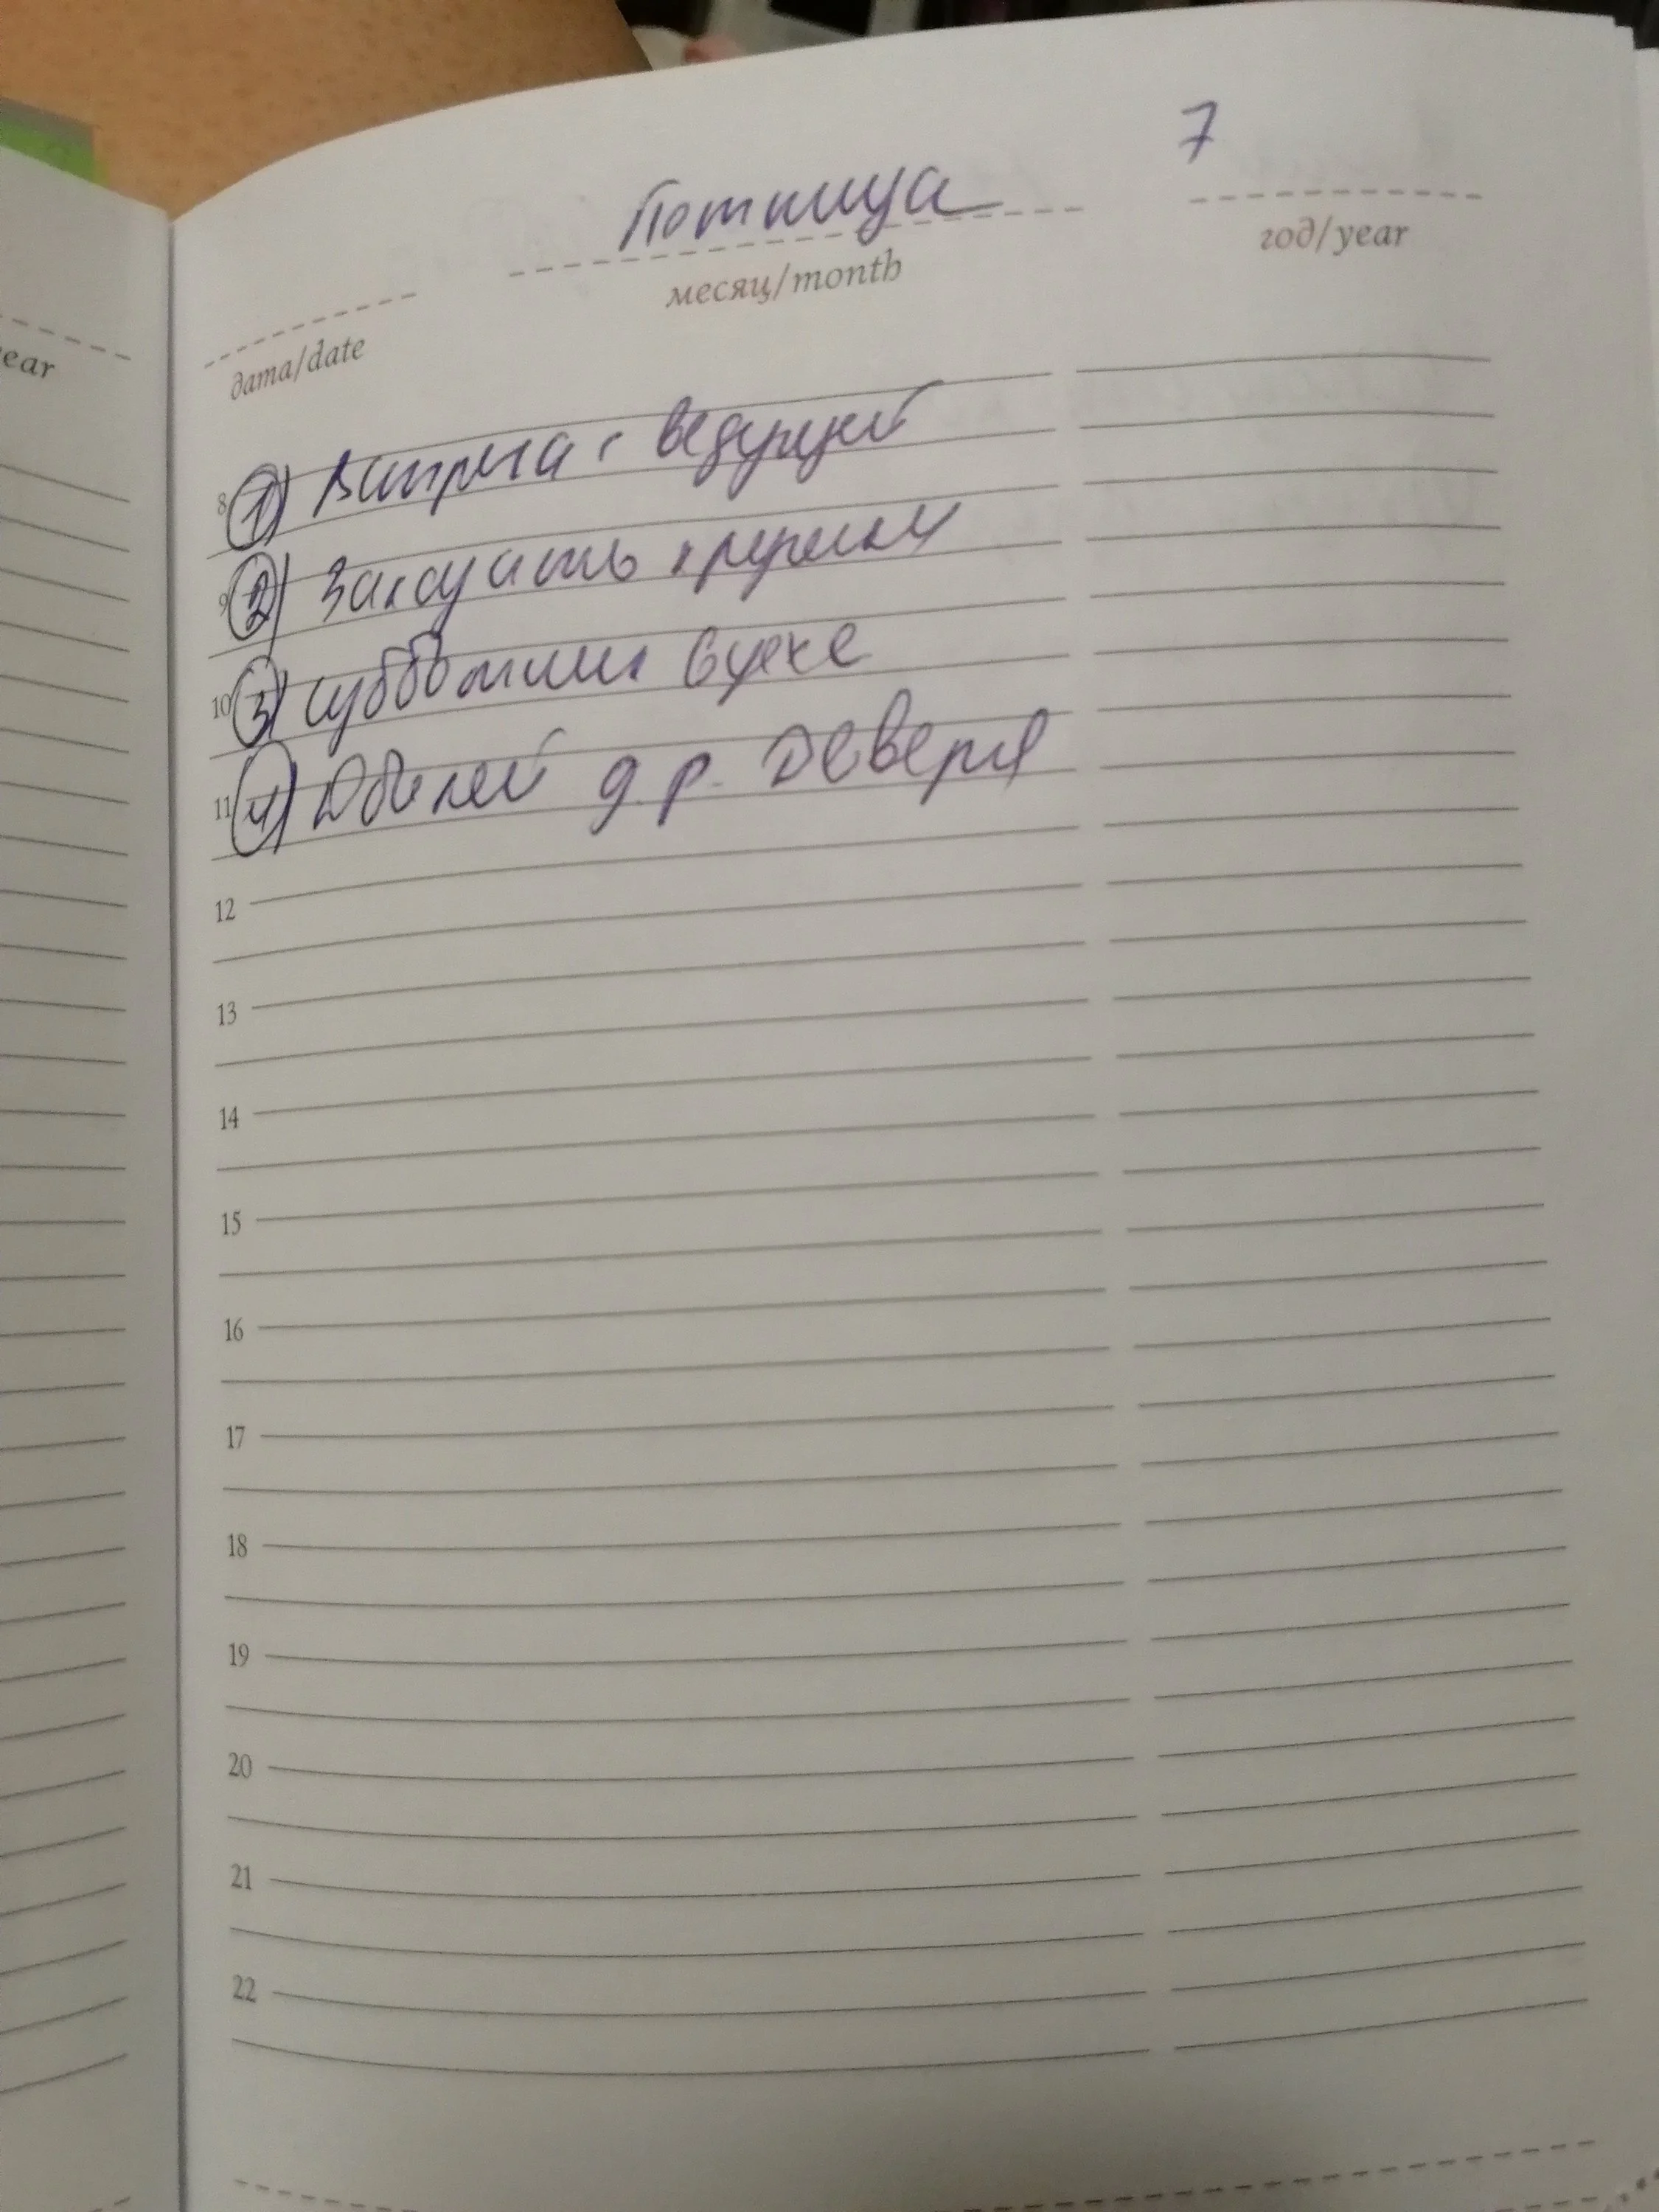 7
Пятница
год/year
месяц/month
дата/date
ear
8 1) Встреча с ведущей
9 2) Закусить
10 3) Субботник
11 4) Юбилей д.р. Деверя
12
13
14
15
16
17
18
19
20
21
22